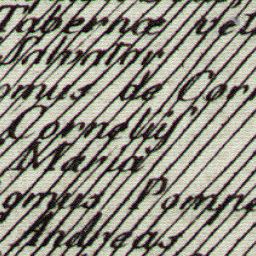 Tabernæ vet
Salvator
omus de Cor
Cornelij
Maria
omus Pompe
Andreas